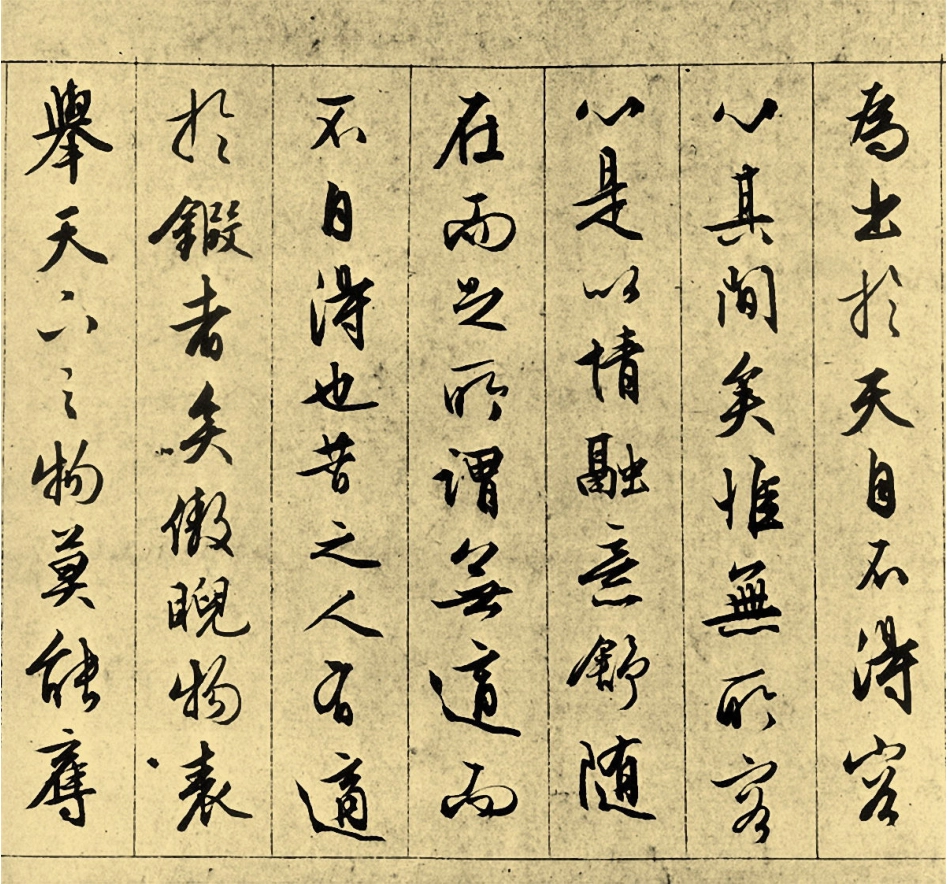 為出於天自不得容
心其間矣惟無所容
心是以情融意舒随
在而足所謂無適而
不自得也昔之人有適
於鍜者矣傲睨物表
舉天下之物莫能奪